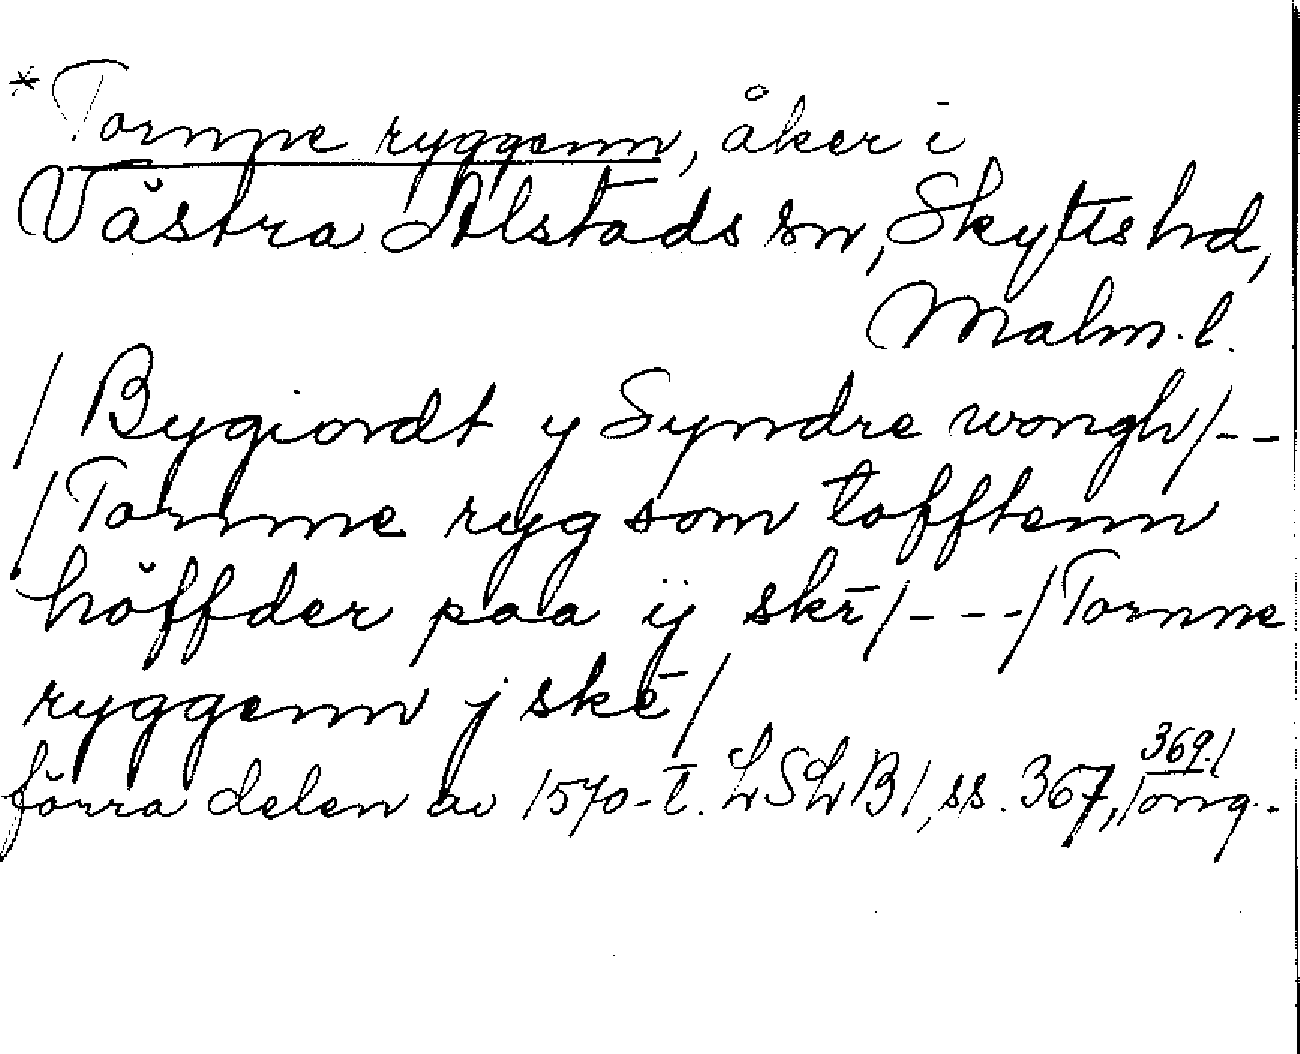 * Tornne ryggenn, åker i
Västra Alstads sn, Skytts hd,
Malm.l.
/ Bygiordt y Syndre wongh/--
/Tornne ryg som tofftenn
höffder paa ij skē/---/Tornne
ryggenn j skē/
369./
förra delen av 1570-t. LSLB 1, ss. 367, /orig.